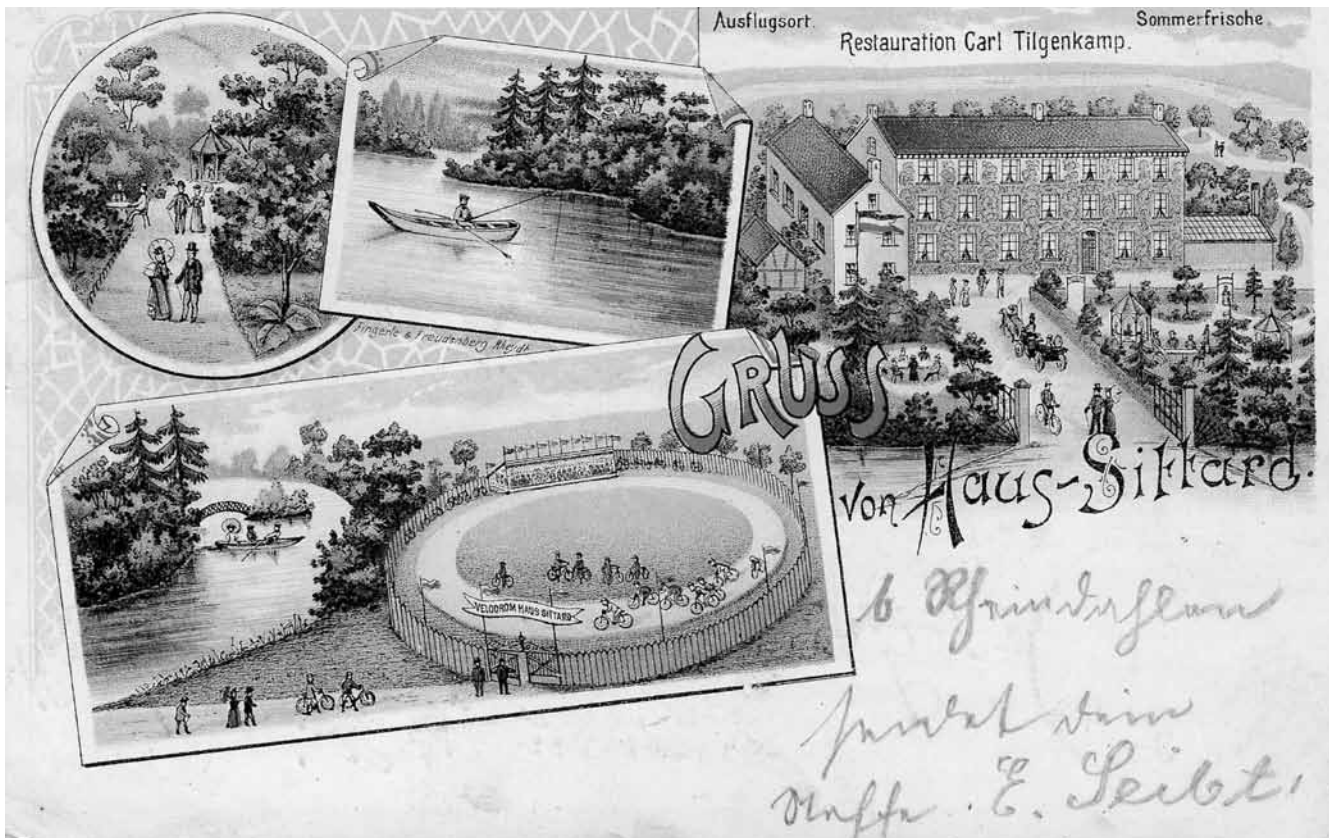 Ausflugsort. Sommerfrische.
Restauration Carl Tilgenkamp.
Fingerle & Freudenberg Rheydt
GRUSS
von Haus-Sittard.
VELODROM HAUS SITTARD
b Rheindahlen
sendet dein
Neffe. E. Seibt.